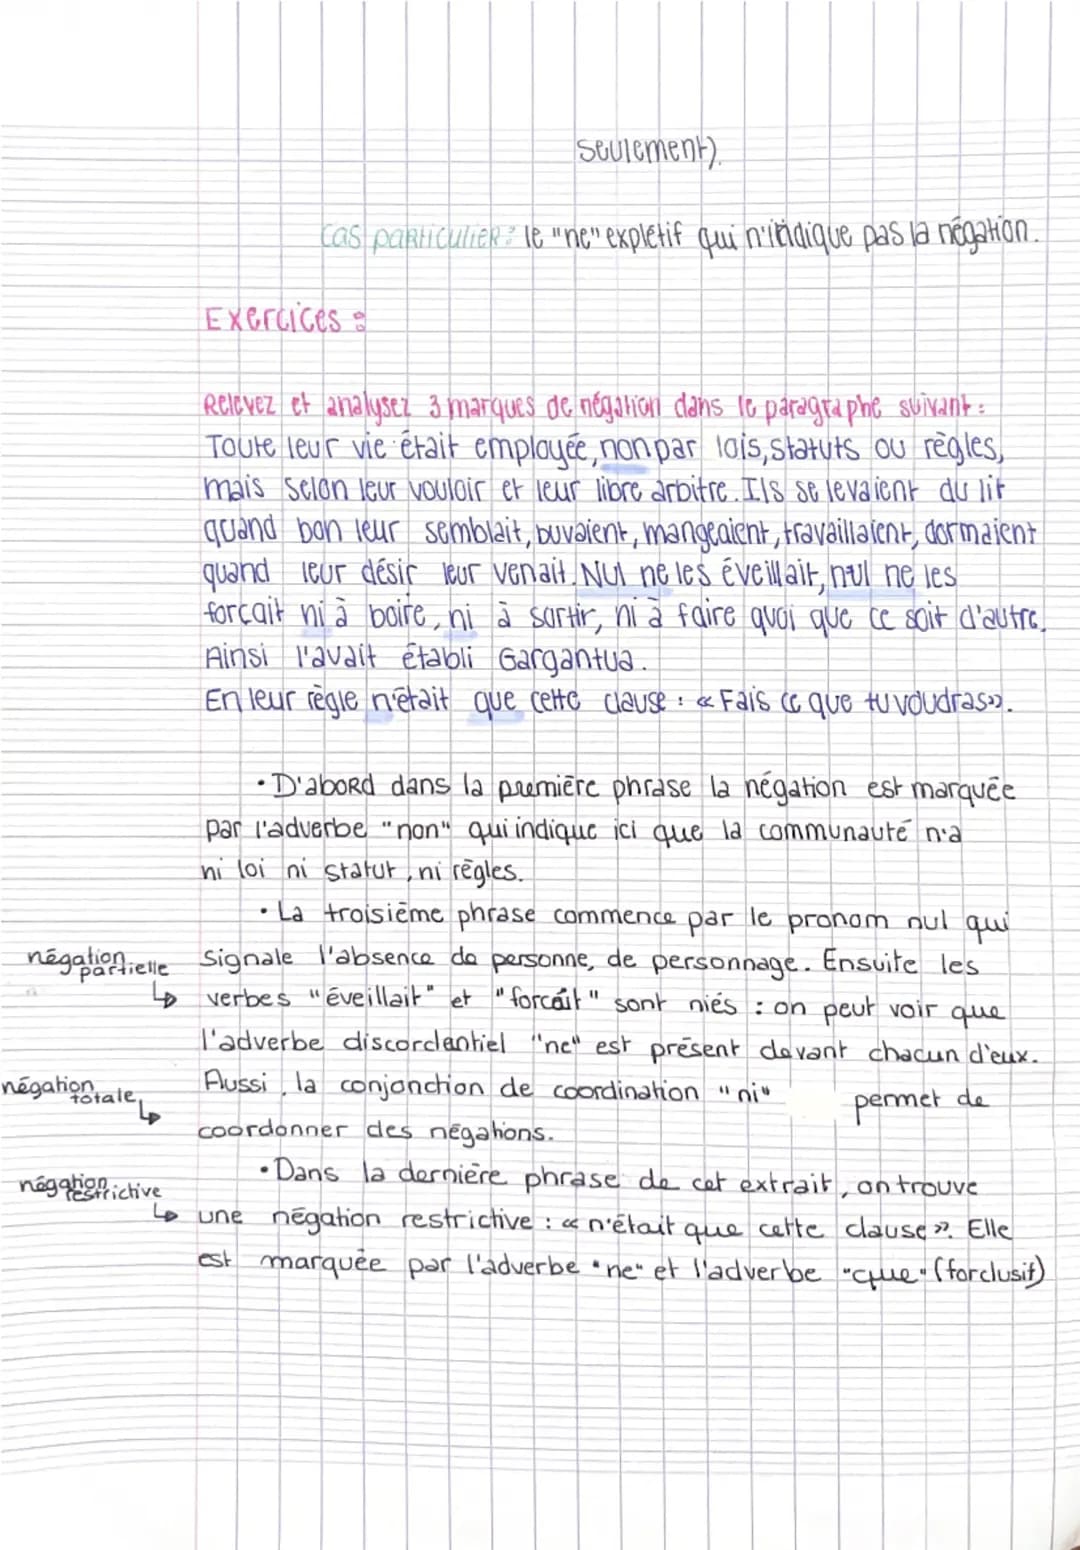 seulement).
Cas particulier : le "ne" explétif qui n'indique pas la négation.
Exercices :
Relevez et analysez 3 marques de négation dans le paragraphe suivant :
Toute leur vie était employée, non par lois, statuts ou règles,
mais selon leur vouloir et leur libre arbitre. Ils se levaient du lit
quand bon leur semblait, buvaient, mangeaient, travaillaient, dormaient
quand leur désir leur venait. Nul ne les éveillait, nul ne les
forçait ni à boire, ni à sortir, ni à faire quoi que ce soit d'autre.
Ainsi l'avait établi Gargantua.
En leur règle n'était que cette clause : « Fais ce que tu voudras ».
• D'abord dans la première phrase la négation est marquée
par l'adverbe "non" qui indique ici que la communauté n'a
ni loi ni statut, ni règles.
• La troisième phrase commence par le pronom nul qui
négation partielle
signale l'absence de personne, de personnage. Ensuite les
↳ verbes "éveillait" et "forcait" sont niés : on peut voir que
l'adverbe discordantiel "ne" est présent devant chacun d'eux.
négation totale ↳
Aussi, la conjonction de coordination "ni" permet de
coordonner des négations.
• Dans la dernière phrase de cet extrait, on trouve
négation restrictive
↳ une négation restrictive : « n'était que cette clause ». Elle
est marquée par l'adverbe "ne" et l'adverbe "que" (forclusif)